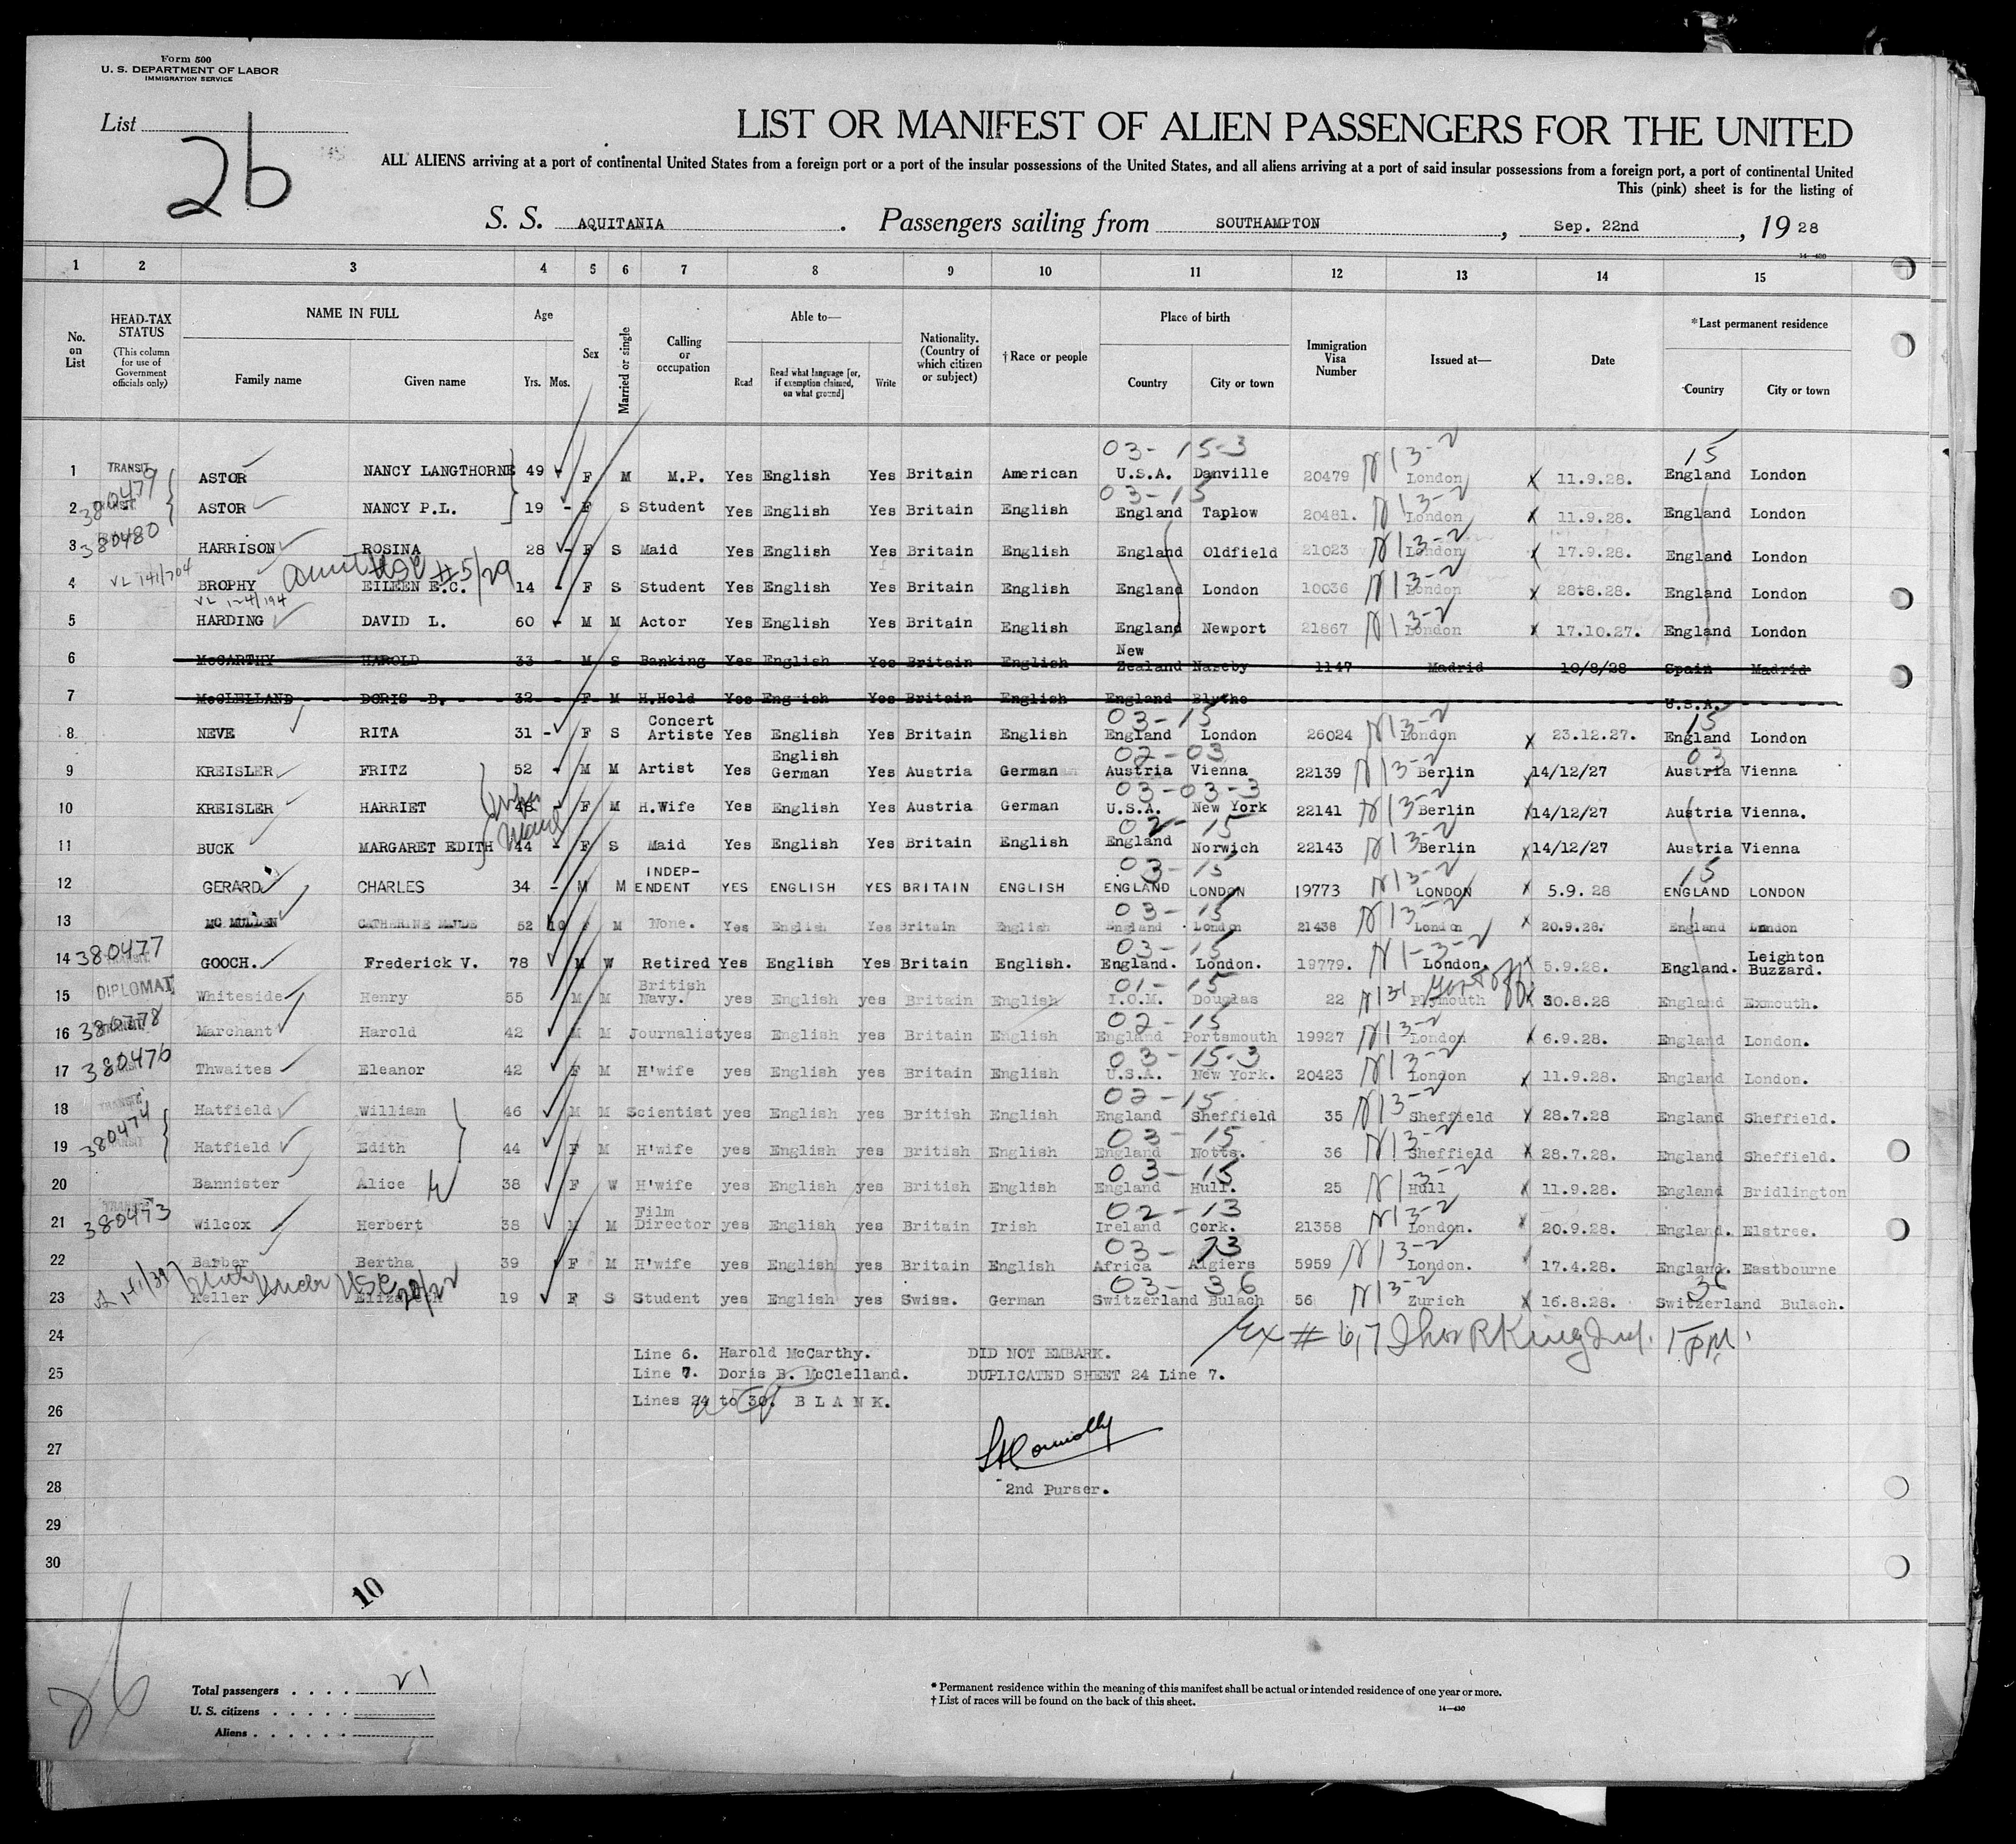 Form 500
U. S. DEPARTMENT OF LABOR
IMMIGRATION SERVICE
List
26
LIST OR MANIFEST OF ALIEN PASSENGERS FOR THE UNITED
ALL ALIENS arriving at a port of continental United States from a foreign port or a port of the insular possessions of the United States, and all aliens arriving at a port of said insular possessions from a foreign port, a port of continental United
This (pink) sheet is for the listing of
S. S. AQUITANIA . Passengers sailing from SOUTHAMPTON , Sep. 22nd , 19 28
14—430
1 2 3 4 5 6 7 8 9 10 11 12 13 14 15
No. on List
HEAD-TAX STATUS
(This column for use of Government officials only)
NAME IN FULL
Family name
Given name
Age
Yrs. Mos.
Sex
Married or single
Calling or occupation
Able to—
Read
Read what language [or, if exemption claimed, on what ground]
Write
Nationality. (Country of which citizen or subject)
† Race or people
Place of birth
Country
City or town
Immigration Visa Number
Issued at—
Date
* Last permanent residence
Country
City or town
03-15-3 N13-2 15
1 TRANSIT ASTOR NANCY LANGTHORNE 49 - F M M.P. Yes English Yes Britain American U.S.A. Danville 20479 London 11.9.28. England London
380479 03-15 N13-2
2 ASTOR NANCY P.L. 19 - F S Student Yes English Yes Britain English England Taplow 20481. London 11.9.28. England London
380480 N13-2
3 HARRISON ROSINA 28 - F S Maid Yes English Yes Britain English England Oldfield 21023 London 17.9.28. England London
VL 141/704 #5/29 N13-2
4 BROPHY EILEEN E.C. 14 - F S Student Yes English Yes Britain English England London 10036 London 28.8.28. England London
N13-2
5 HARDING DAVID L. 60 - M M Actor Yes English Yes Britain English England Newport 21867 London 17.10.27. England London
6 McCARTHY HAROLD 33 - M S Banking Yes English Yes Britain English New Zealand Naseby 1147 Madrid 10/8/28 Spain Madrid
7 McCLELLAND DORIS B. 32 - F M H.Hold Yes Eng-ish Yes Britain English England Blythe U.S.A.
03-15 N13-2 15
8 NEVE RITA 31 - F S Concert Artiste Yes English Yes Britain English England London 26024 London 23.12.27. England London
02-03 N13-2 03
9 KREISLER FRITZ 52 - M M Artist Yes English German Yes Austria German Austria Vienna 22139 Berlin 14/12/27 Austria Vienna
03-03-3 N13-2
10 KREISLER HARRIET 48 - F M H.Wife Yes English Yes Austria German U.S.A. New York 22141 Berlin 14/12/27 Austria Vienna.
02-15 N13-2
11 BUCK MARGARET EDITH 44 - F S Maid Yes English Yes Britain English England Norwich 22143 Berlin 14/12/27 Austria Vienna
03-15 N13-2 15
12 GERARD CHARLES 34 - M M INDEP-ENDENT YES ENGLISH YES BRITAIN ENGLISH ENGLAND LONDON 19773 LONDON 5.9.28 ENGLAND LONDON
03-15 N13-2
13 MC MULLEN CATHERINE MAUDE 52 10 F M None. Yes English Yes Britain English England London 21438 London 20.9.28. England London
03-15 N1-3-2
14 380477 GOOCH. Frederick V. 78 M W Retired Yes English Yes Britain English. England. London. 19779. London. 5.9.28. England. Leighton Buzzard.
01-15
15 DIPLOMAT Whiteside Henry 55 M M British Navy. yes English yes Britain English I.O.M. Douglas 22 Plymouth 30.8.28 England Exmouth.
02-15 N13-2
16 380478 Marchant Harold 42 M M Journalist yes English yes Britain English England Portsmouth 19927 London 6.9.28. England London.
03-15-3 N13-2
17 380476 Thwaites Eleanor 42 F M H'wife yes English yes Britain English U.S.A. New York. 20423 London 11.9.28. England London.
02-15 N13-2
18 TRANSIT Hatfield William 46 M M Scientist yes English yes British English England Sheffield 35 Sheffield 28.7.28 England Sheffield.
380474 03-15 N13-2
19 TRANSIT Hatfield Edith 44 F M H'wife yes English yes British English England Notts. 36 Sheffield 28.7.28. England Sheffield.
03-15 N13-2
20 Bannister Alice 38 F W H'wife yes English yes British English England Hull. 25 Hull 11.9.28. England Bridlington
02-13 N13-2
21 TRANSIT 380473 Wilcox Herbert 38 M M Film Director yes English yes Britain Irish Ireland Cork. 21358 London. 20.9.28. England. Elstree.
03-73 N13-2
22 Barber Bertha 39 F M H'wife yes English yes Britain English Africa Algiers 5959 London. 17.4.28. England. Eastbourne
03-36 N13-2 36
23 Keller Elizabeth 19 F S Student yes English yes Swiss. German Switzerland Bulach 56 Zurich 16.8.28. Switzerland Bulach.
24 Line 6. Harold McCarthy. DID NOT EMBARK.
25 Line 7. Doris B. McClelland. DUPLICATED SHEET 24 Line 7.
26 Lines 24 to 30. B L A N K.
27
28 2nd Purser.
29
30
10
26
Total passengers . . . . 21
U. S. citizens . . . . .
Aliens . . . . . .
* Permanent residence within the meaning of this manifest shall be actual or intended residence of one year or more.
† List of races will be found on the back of this sheet.
14—430